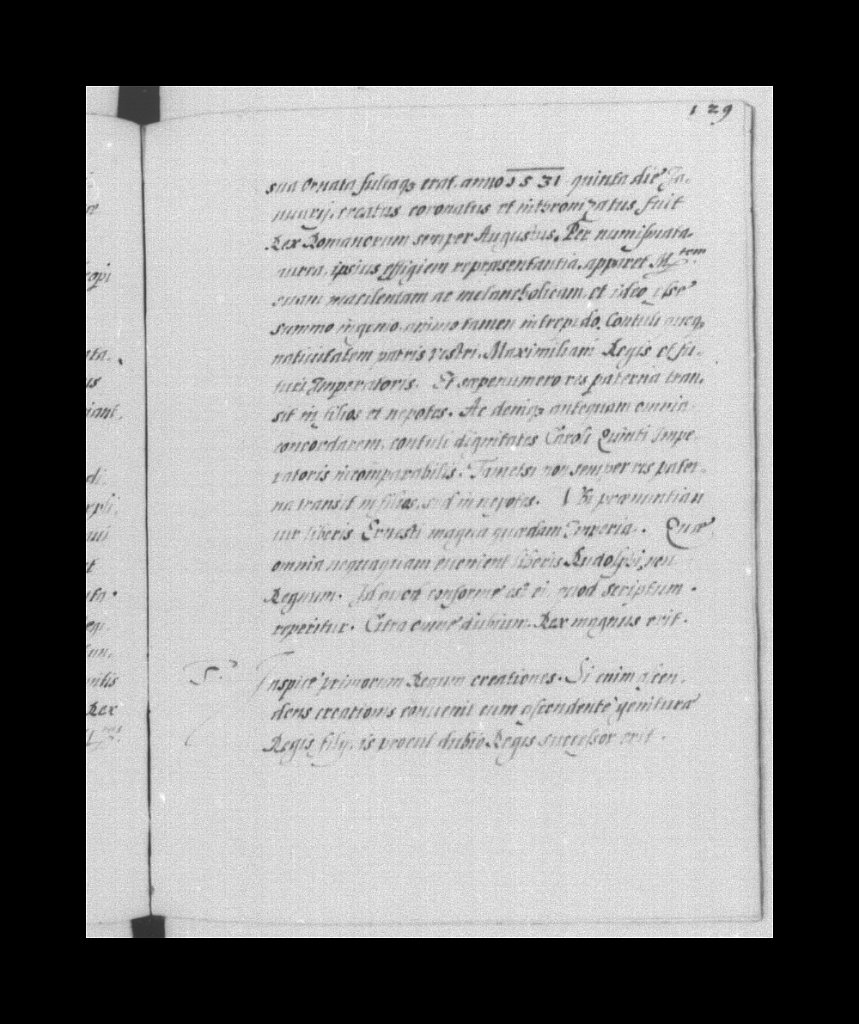 129
sua ornata fultaq₃ erat, anno 1531 quinta die Ja-
nuarij, creatus coronatus et inthronizatus fuit
Rex Romanorum semper Augustus. Per numismata
aurea, ipsius effigiem repræsentantia, apparet M tem
suam macilentam ac melancholicam, et ideo esse
summo ingenio, animo tamen intrepido. Contuli
natiuitatem patris vestri, Maximiliani Regis et fu-
turi Imperatoris. Et sæpenumero res paterna tran-
sit in filios et nepotes. Ac deniq₃ antequam omnia
concordarem, contuli dignitates Caroli Quinti Impe
ratoris incomparabilis. Tametsi non semper res pater-
na transit in filios, sed in nepotes. Vbi prænuntian
tur liberis Ernesti magna quædam Imperia. Quæ
omnia nequaquam euenient liberis Rudolphi, seu
Regnum. Id quod conforme est ei, quod scriptum
reperitur. Citra omne dubium. Rex magnus erit.
5.
Inspice primorum Regum creationes. Si enim ascen-
dens creationis conuenit cum ascendente genituræ
Regis filij, is procul dubio Regis successor erit.
copi
us
di.
Rex